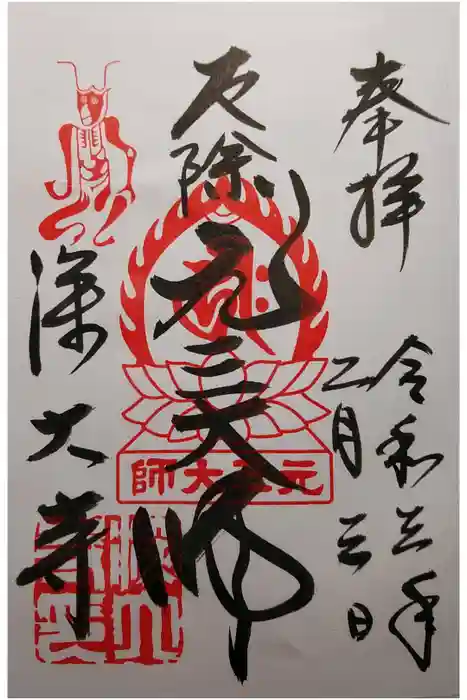 奉拝
令和五年
二月三日
厄除
元三大師
師大三元
深大寺